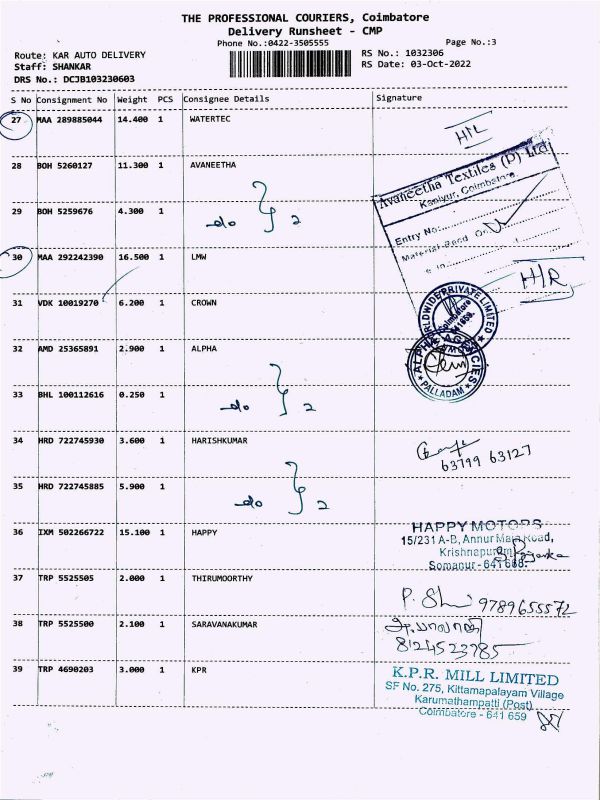 THE PROFESSIONAL COURIERS, Coimbatore
Delivery Runsheet - CMP
Phone No.:0422-3505555
Page No.:3
Route: KAR AUTO DELIVERY
RS No.: 1032306
Staff: SHANKAR
RS Date: 03-Oct-2022
DRS No.: DCJB103230603
S No Consignment No Weight PCS Consignee Details Signature
27 MAA 289885044 14.400 1 WATERTEC
H/L
28 BOH 5260127 11.300 1 AVANEETHA
Avaneetha Textiles (P) Ltd
Kaniyur, Coimbatore
Entry No:
29 BOH 5259676 4.300 1
do 2
30 MAA 292242390 16.500 1 LMW
H/R
31 VDK 10019270 6.200 1 CROWN
WORLDWIDE PRIVATE LIMITED
Coimbatore
641 659.
32 AMD 25365891 2.900 1 ALPHA
ALPHA AGENCIES
PALLADAM
33 BHL 100112616 0.250 1
do 2
34 HRD 722745930 3.600 1 HARISHKUMAR
63799 63127
35 HRD 722745885 5.900 1
do 2
36 IXM 502266722 15.100 1 HAPPY
HAPPY MOTORS
15/231 A-B, Annur Main Road,
Krishnapuram
Somanur - 641 668.
37 TRP 5525505 2.000 1 THIRUMOORTHY
9789655572
38 TRP 5525500 2.100 1 SARAVANAKUMAR
8124523785
39 TRP 4690203 3.000 1 KPR
K.P.R. MILL LIMITED
SF No. 275, Kittamapalayam Village
Karumathampatti (Post)
Coimbatore - 641 659